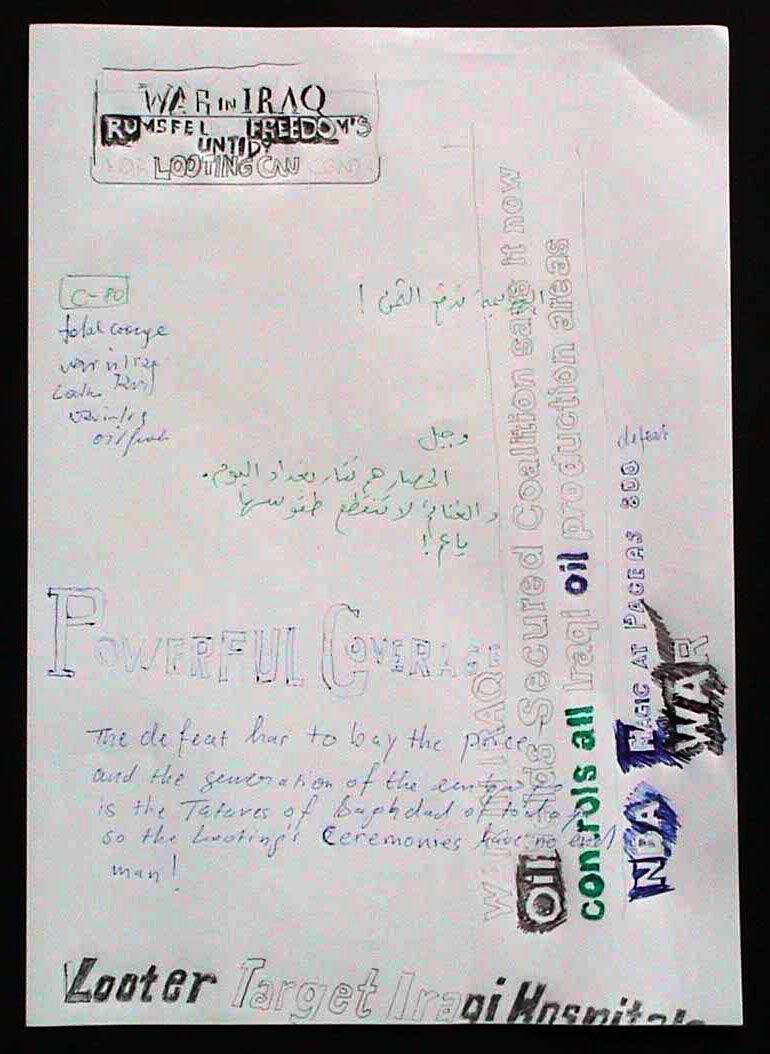 WAR IN IRAQ
RUMSFEL FREEDOM'S
UNTIDY
LOOTING CNN
C-80
total
war in Iraq
! تدفع الثمن
وجيل
الحصار هم تتار بغداد اليوم.
والغنائم لا تنقطع طقوسها
ياعم!
POWERFUL COVERAGE
The defeat has to buy the price
and the generation of the embargo
is the Tatares of Baghdad of today
so the Looting's Ceremonies have no end
man!
WAR IN IRAQ
Oil fields Secured Coalition says it now
controls all Iraqi oil production areas
defeat
NBA MAGIC AT PACERS 800
WAR
Looter Target Iraqi Hospitals